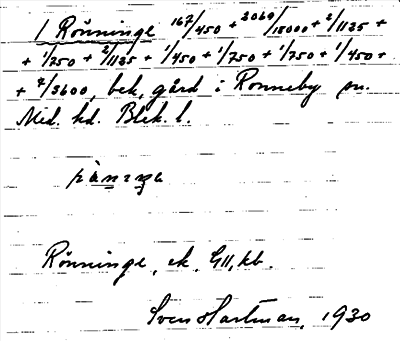 1 Rönninge 167/450 + 2069/18000 + 2/1125 +
+ 1/750 + 2/1125 + 1/450 + 1/750 + 1/750 + 1/450 +
+ 7/3600, bek. gård i Ronneby sn.
Med. hd. Blek. l.
Rönninge, ek. GII, kb.
Sven Hartman, 1930